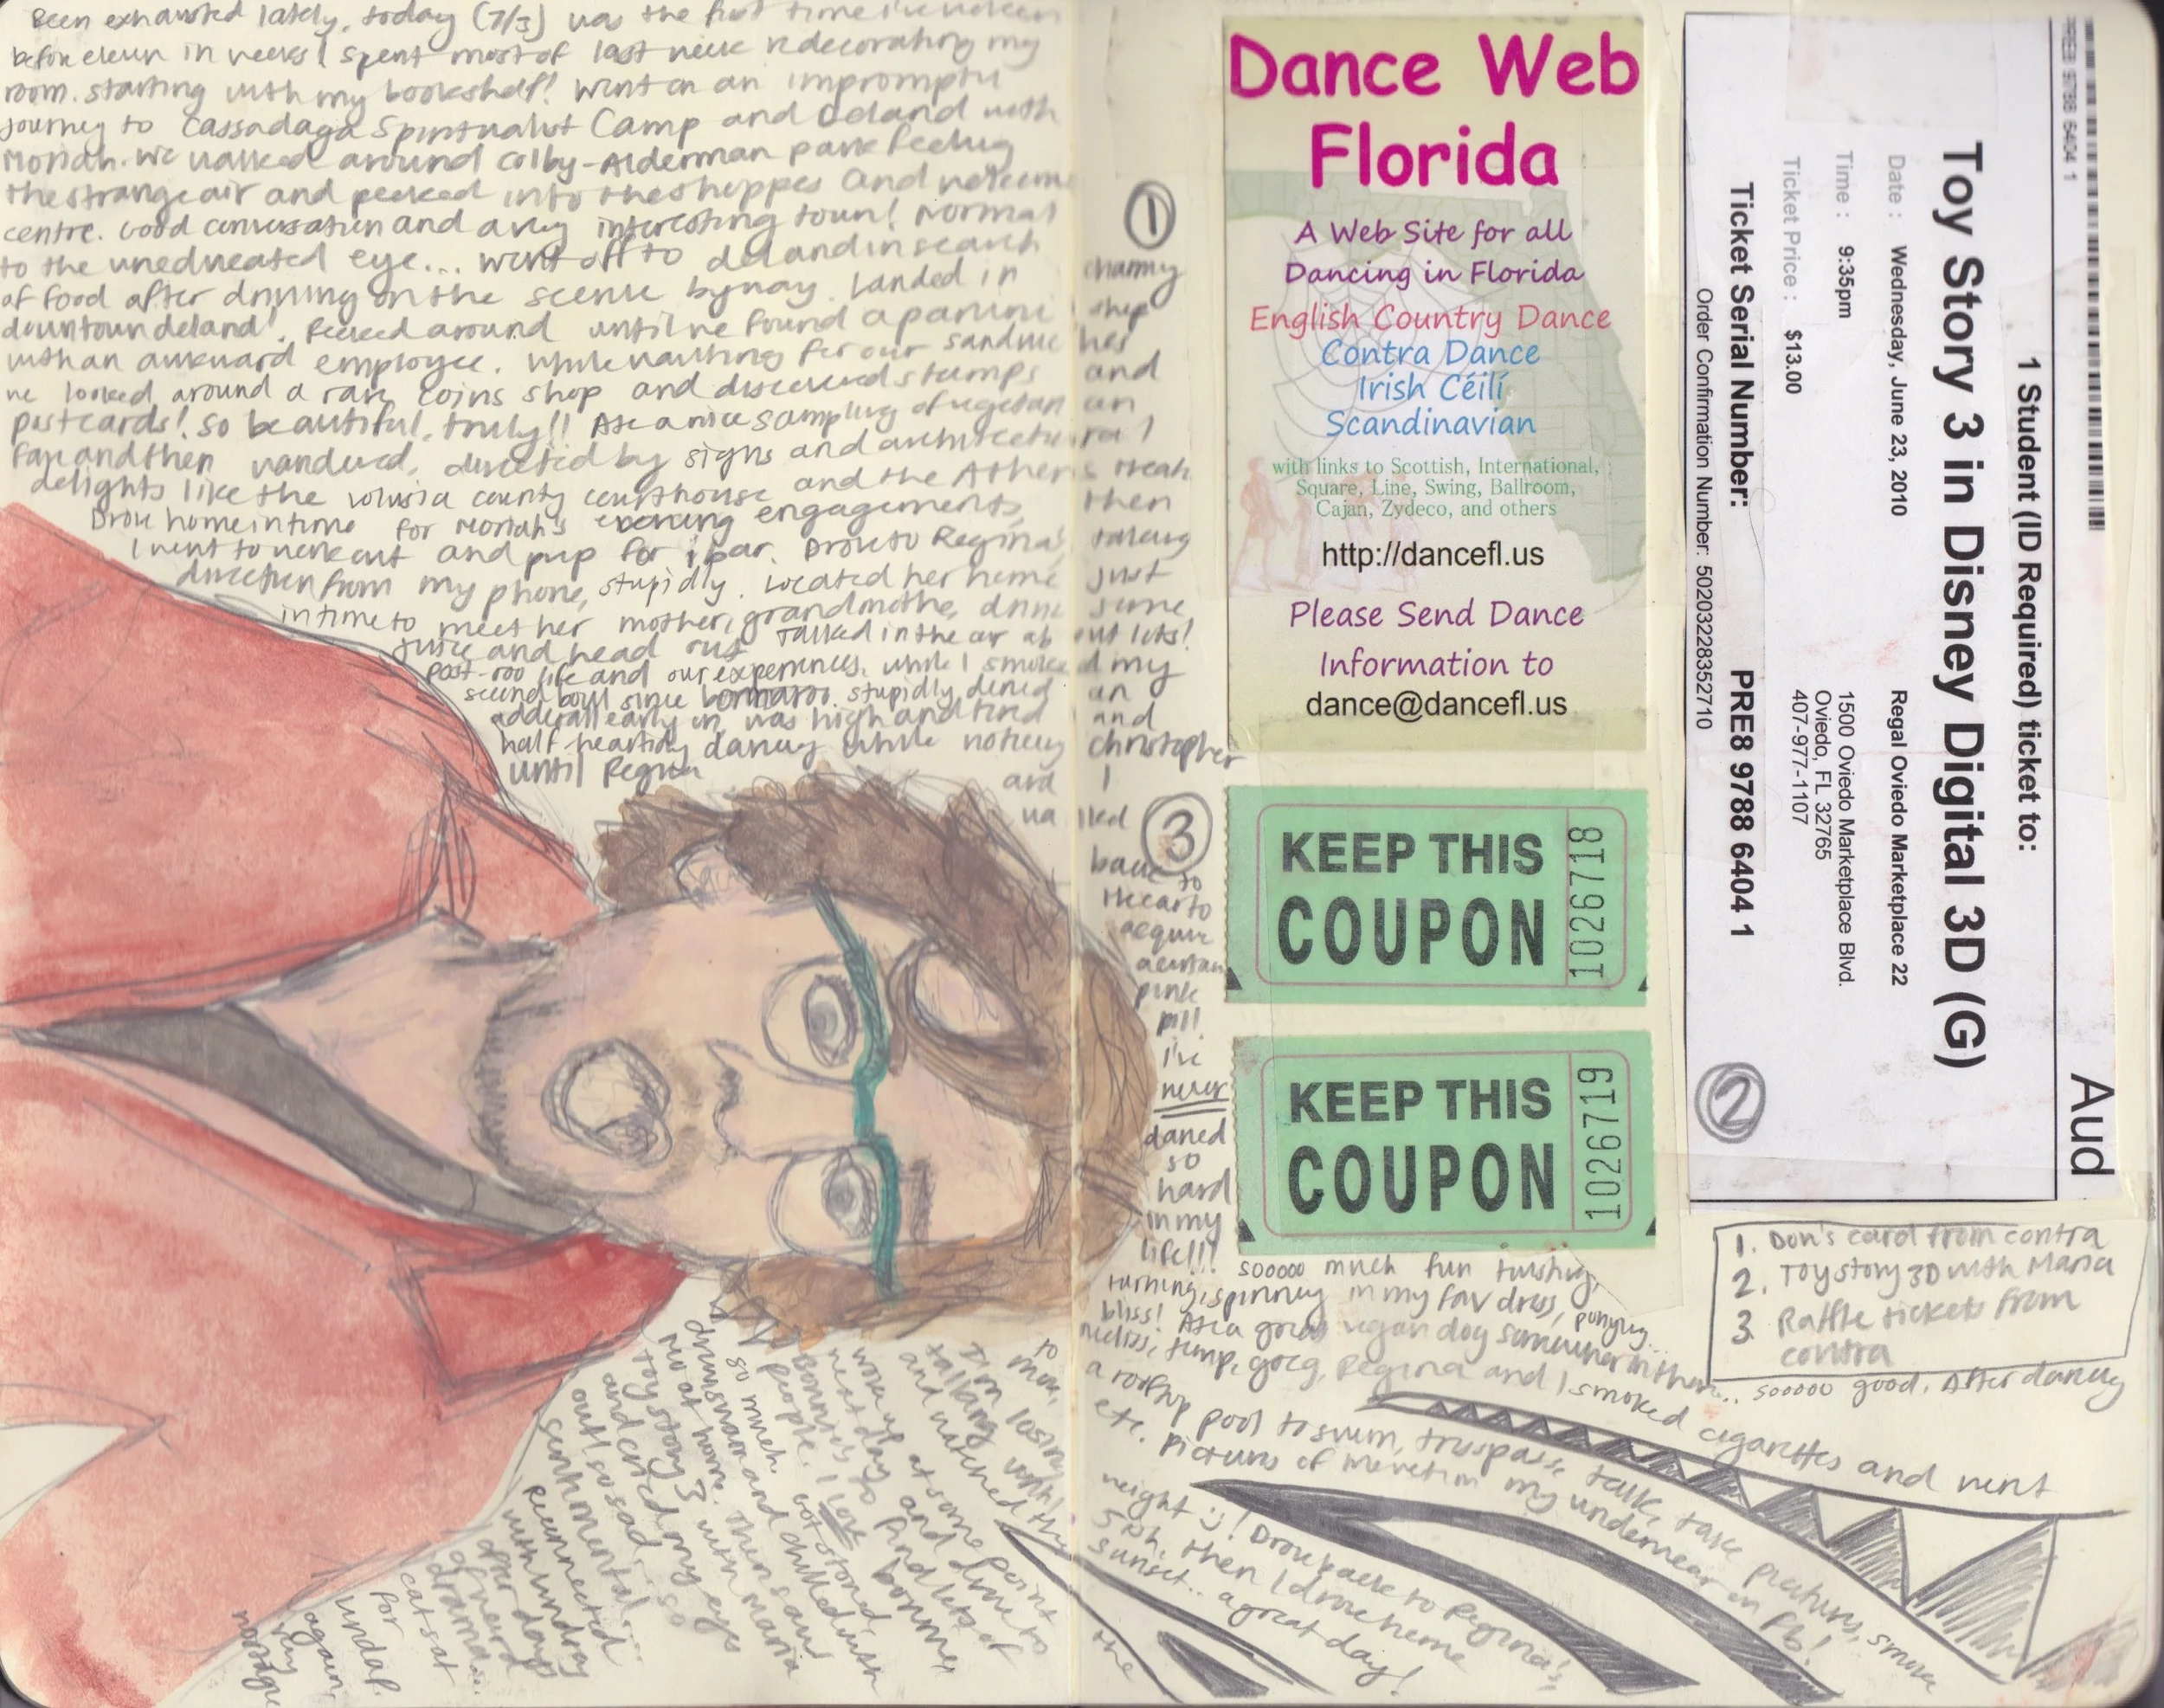 Been exhausted lately, today (7/3) was the first time I've woken
before eleven in weeks! I spent most of last week redecorating my
room. starting with my bookshelf! Went on an impromptu
journey to Cassadaga Spiritualist Camp and Deland with
Moriah. We walked around Colby-Alderman park feeling
the strange air and peeked into the shoppes and welcome
centre. Good conversation and a very interesting town! Normal
to the uneducated eye... went off to deland in search
of food after driving on the scenic byway. Landed in charming
downtown deland! Peeked around until we found a panini shop
with an awkward employee. While waiting for our sandwiches
we looked around a rare coins shop and discovered stamps and
postcards! So beautiful, truly!! Ate a nice sampling of vegetarian
fare and then wandered, directed by signs and architectural
delights like the volusia county courthouse and the Athens Theatre
Drove home in time for Moriah's evening engagements, then
I went to work out and prep for ibar. Drove to Regina's taking
direction from my phone, stupidly. Located her home just
in time to meet her mother, grandmother, drink some
juice and head out. Talked in the air about lots!
post-roo life and our experiences, while I smoked my
second bowl since bonnaroo. stupidly denied an
adderall early on, was high and tired and
half heartedly dancing while noticing christopher
until Regina and I
walked
back to
the car to
acquire
a certain
pink
pill.
I've
never
danced
so
hard
in my
life!!! sooooo much fun twisting,
turning, spinning in my fav dress, ponying...
bliss! Ate a great vegan dog somewhere in there... sooooo good. After dancing
melissi, jump, greg, Regina and I smoked cigarettes and went
a rooftop pool to swim, trespass, talk, take pictures, smoke
etc. Pictures of me wet in my underwear on fb!
weight :)! Drove back to Regina's,
5ish, then I drove home
sunset... a great day!
the
to
mom,
I'm losing
talking
and watched the
woke up at some point
next day and drove to
Bonnie's to find lots of
people. I love bonnie
so much. Got stoned,
drums and chilled with
no at home. Then saw
toy story 3 with Maria
and cried my eyes
out! so sad, so
sentimental...
Reconnected
with lindsay
after days
of weird
drama...
cat sat
for
Lindap.
again,
very
1
Dance Web
Florida
A Web Site for all
Dancing in Florida
English Country Dance
Contra Dance
Irish Céilí
Scandinavian
with links to Scottish, International,
Square, Line, Swing, Ballroom,
Cajan, Zydeco, and others
http://dancefl.us
Please Send Dance
Information to
dance@dancefl.us
3
KEEP THIS
COUPON
1029718
KEEP THIS
COUPON
1029719
Aud
1 Student (ID Required) ticket to:
Toy Story 3 in Disney Digital 3D (G)
Date : Wednesday, June 23, 2010
Regal Oviedo Marketplace 22
Time : 9:35pm
1500 Oviedo Marketplace Blvd.
Oviedo, FL 32765
407-977-1107
Ticket Price : $13.00
Ticket Serial Number: PRE8 9788 6404 1
Order Confirmation Number: 5020322835​2710
PRE8 9788 6404 1
2
1. Don's card from contra
2. Toy story 3D with Maria
3 Raffle tickets from
contra